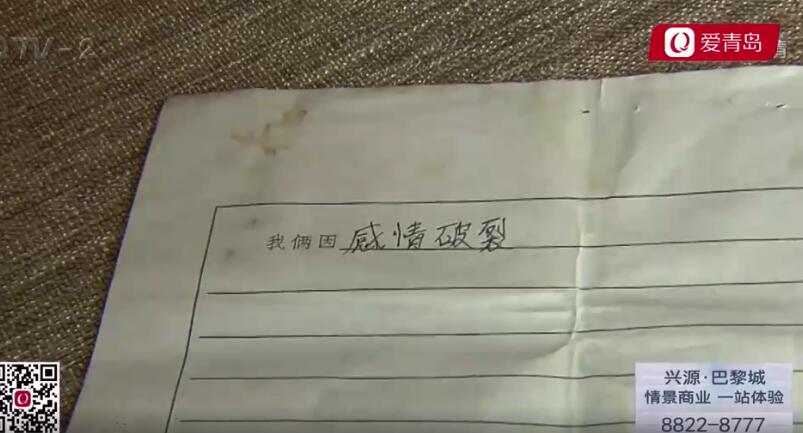 QTV-2
爱青岛
我俩因感情破裂
兴源·巴黎城
情景商业 一站体验
8822-8777